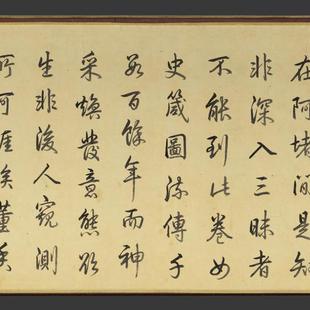 在阿堵間是知
非深入三昧者
不能到此卷女
史箴圖流傳千
百餘年而神
采煥發意態欲
生非後人窺測
所可涯涘董香